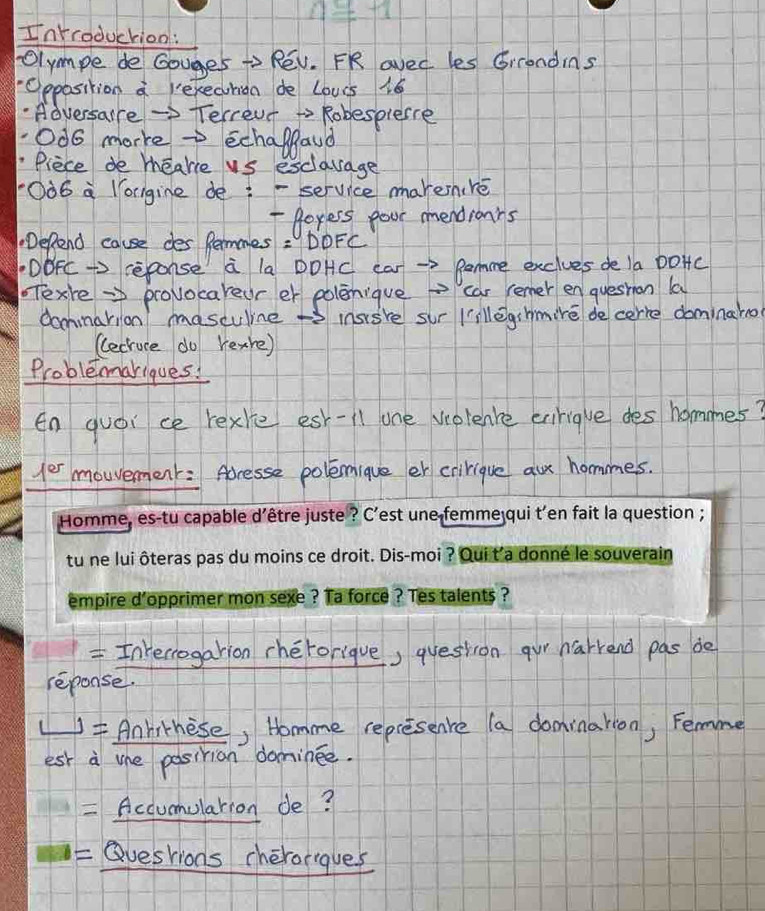 n° 1
Introduction:
•Olympe de Gouges → Rév. FR avec les Girondins
•Opposition à l'exécution de Louis 16
•Adversaire → Terreur → Robespierre
•OdG morte → échaffaud
•Pièce de théatre vs esclavage
•OdG à l'origine de : - service maternité
- foyers pour mendiants
•Défend cause des femmes = DDFC
•DDFC → réponse à la DDHC car → femme exclues de la DDHC
•Texte → provocateur et polémique → car remet en question la
domination masculine → insiste sur l'illégitimité de cette domination
(Lecture du texte)
Problématiques:
En quoi ce texte est-il une violente critique des hommes?
1er mouvement: Adresse polémique et critique aux hommes.
Homme, es-tu capable d'être juste ? C'est une femme qui t'en fait la question ;
tu ne lui ôteras pas du moins ce droit. Dis-moi ? Qui t'a donné le souverain
empire d'opprimer mon sexe ? Ta force ? Tes talents ?
= Interrogation rhétorique, question qui n'attend pas de
réponse.
= Antithèse, Homme représente la domination, Femme
est à une position dominée.
= Accumulation de ?
= Questions rhétoriques